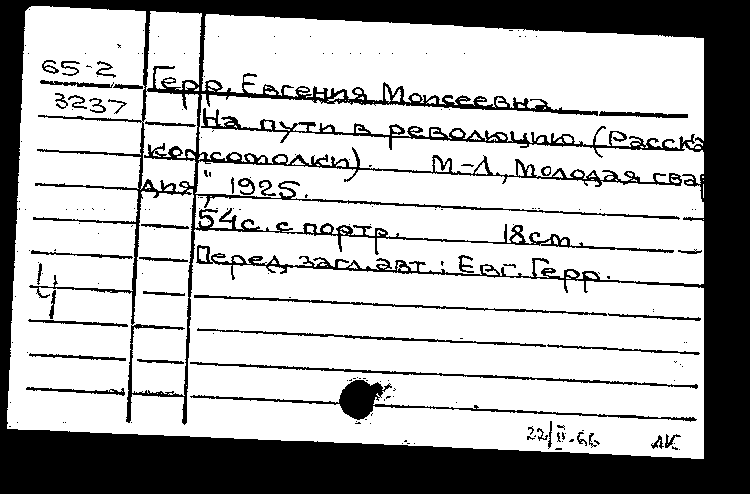 65-2
Герр, Евгения Моисеевна.
3237
На пути в революцию. (Расска
комсомолки). М.-Л., Молодая гвар
дия", 1925.
54с. с портр. 18см.
Перед загл. авт.: Евг. Герр.
4
22/II-66 АК